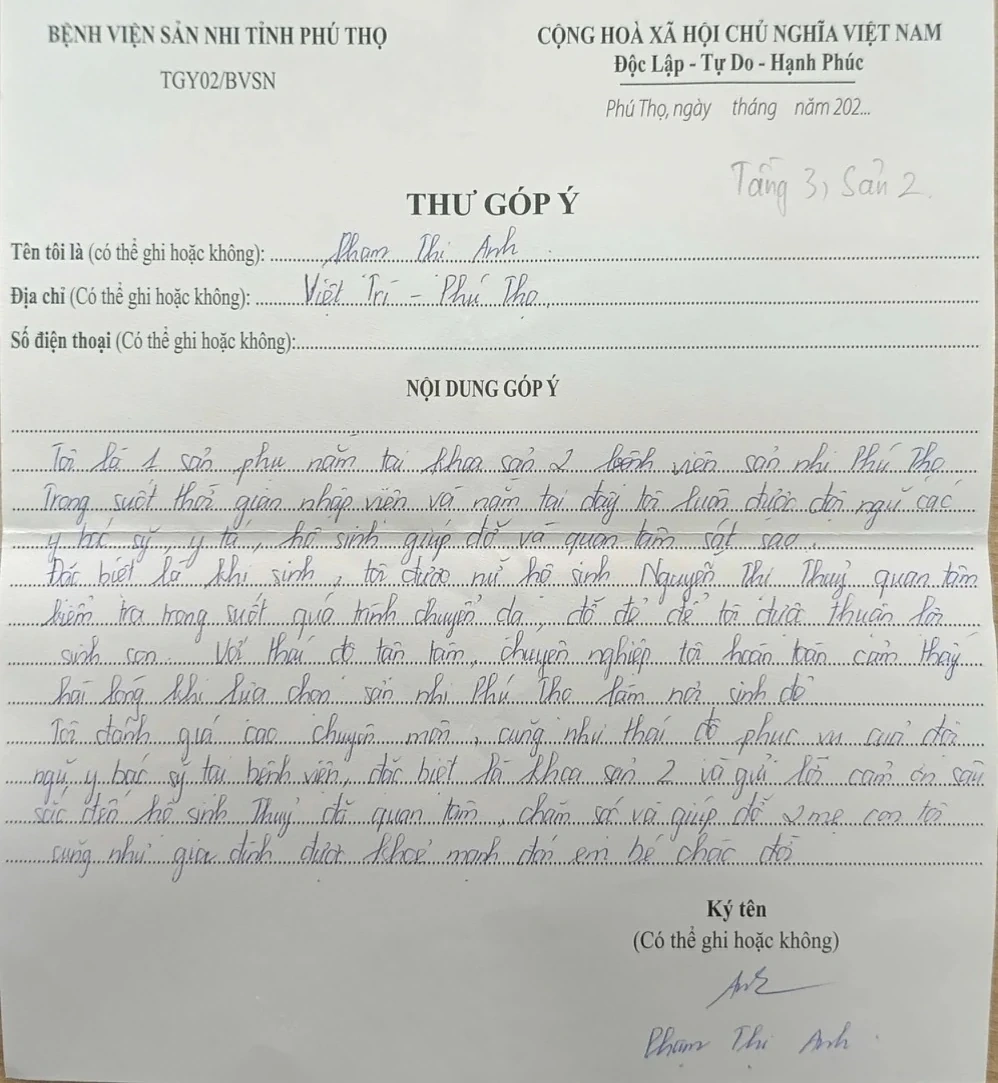 BỆNH VIỆN SẢN NHI TỈNH PHÚ THỌ
TGY02/BVSN
CỘNG HOÀ XÃ HỘI CHỦ NGHĨA VIỆT NAM
Độc Lập - Tự Do - Hạnh Phúc
Phú Thọ, ngày tháng năm 202...
Tầng 3, Sản 2
THƯ GÓP Ý
Tên tôi là (có thể ghi hoặc không): Phạm Thị Anh
Địa chỉ (Có thể ghi hoặc không): Việt Trì - Phú Thọ
Số điện thoại (Có thể ghi hoặc không):
NỘI DUNG GÓP Ý
Tôi là 1 sản phụ nằm tại khoa sản 2 bệnh viện sản nhi Phú Thọ
Trong suốt thời gian nhập viện và nằm tại đây tôi luôn được đội ngũ các
y bác sỹ, y tá, hộ sinh giúp đỡ và quan tâm sát sao.
Đặc biệt là khi sinh, tôi được nữ hộ sinh Nguyễn Thị Thuỷ quan tâm
kiểm tra trong suốt quá trình chuyển dạ, đỡ đẻ để tôi được thuận lời
sinh con. Với thái độ tận tâm, chuyên nghiệp tôi hoàn toàn cảm thấy
hài lòng khi lựa chọn sản nhi Phú Thọ làm nơi sinh đẻ
Tôi đánh giá cao chuyên môn, cũng như thái độ phục vụ của đội
ngũ y bác sỹ tại bệnh viện, đặc biệt là khoa sản 2 và gửi lời cảm ơn sâu
sắc đến hộ sinh Thuỷ đã quan tâm, chăm sóc và giúp đỡ 2 mẹ con tôi
cũng như gia đình được khoẻ mạnh đón em bé chào đời
Ký tên
(Có thể ghi hoặc không)
Anh
Phạm Thị Anh